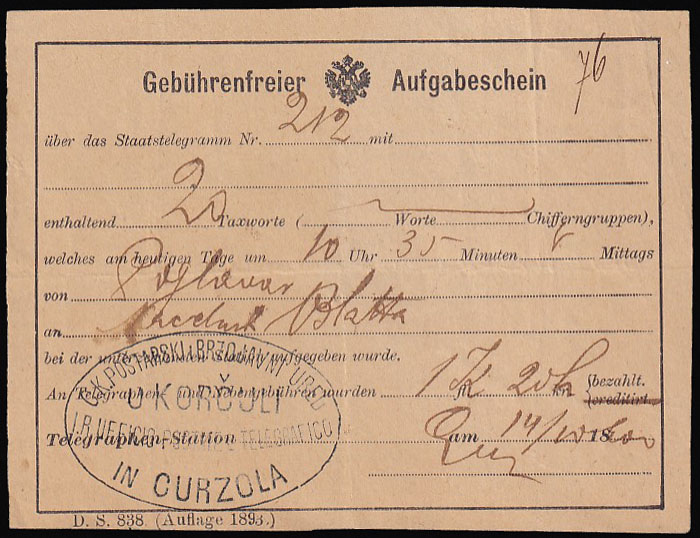 76
Gebührenfreier Aufgabeschein
über das Staatstelegramm Nr. 212 mit
enthaltend 20 Taxworte ( Worte Chifferngruppen),
welches am heutigen Tage um 10 Uhr 35 Minuten Mittags
von Poglavar
an Blatta
bei der unterzeichneten Station aufgegeben wurde.
An Telegraphen- und Nebengebühren wurden 1 K 20 h bezahlt.
creditirt.
Telegraphen-Station am 14/10 18
C.K. POSTARSKI I BRZOJAVNI URED
U KORČULI
I.R. UFFICIO POSTALE E TELEGRAFICO
IN CURZOLA
D. S. 838. (Auflage 1893.)